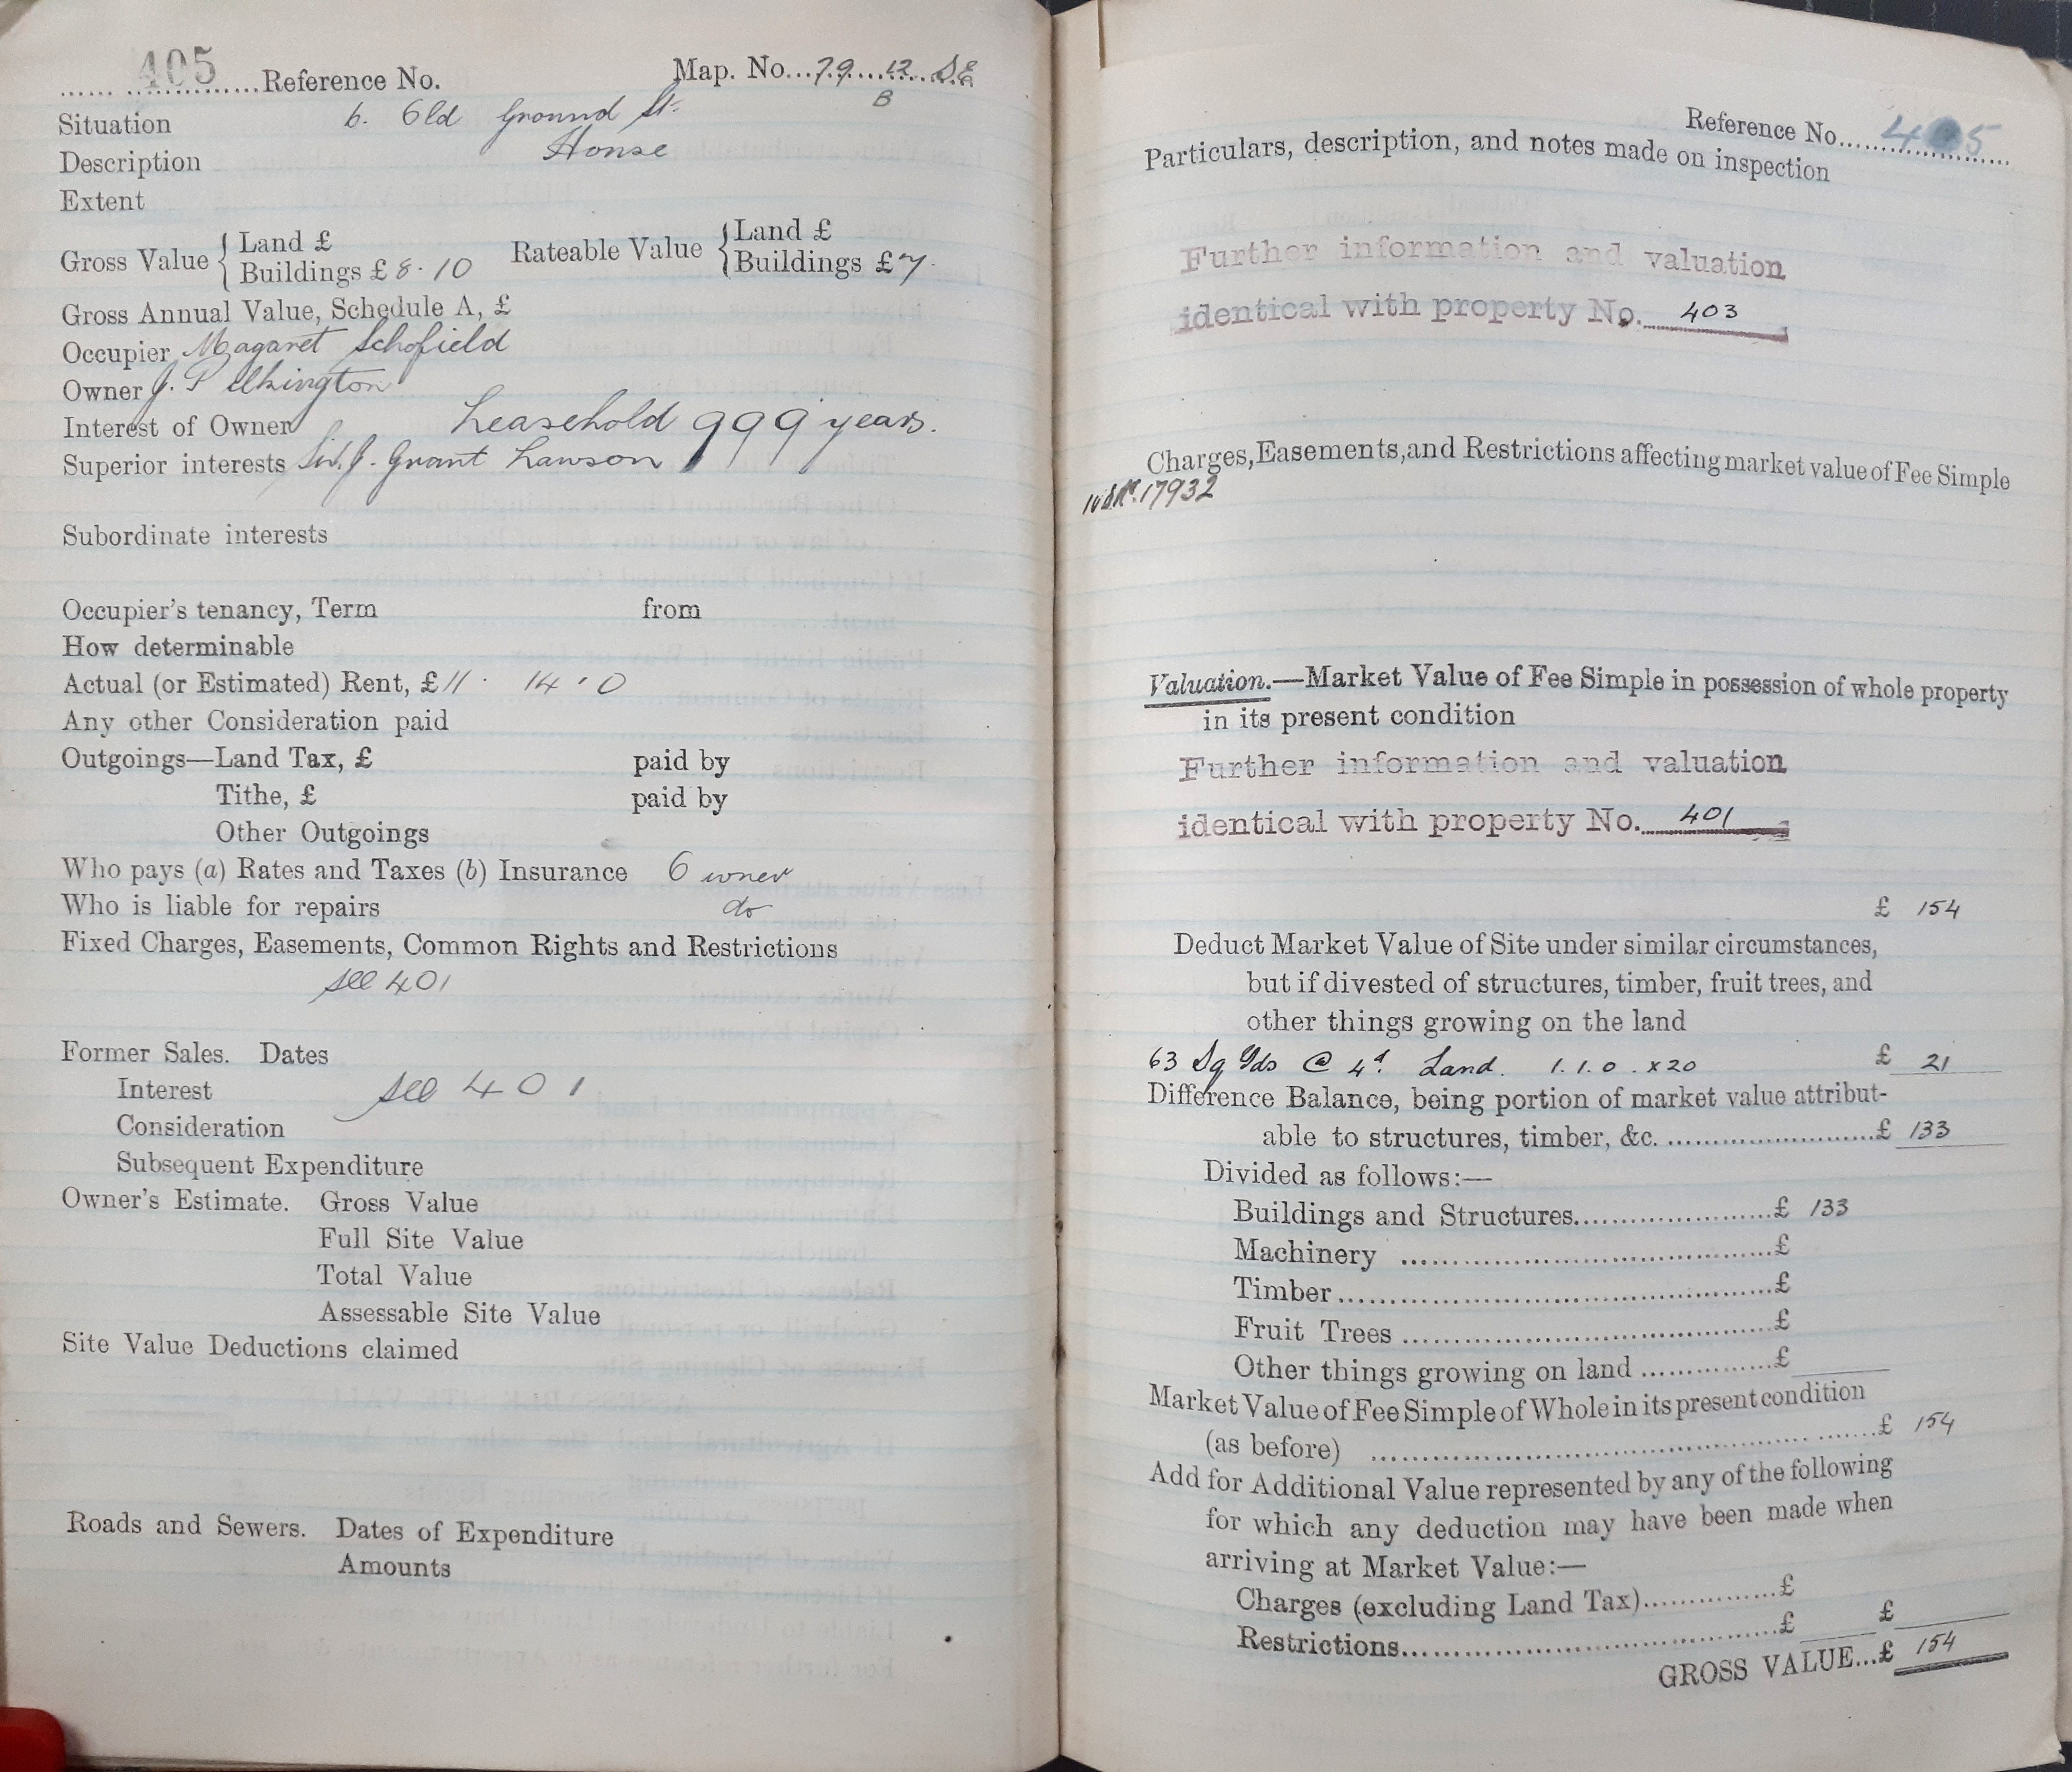 405 Reference No. Map. No. 79 12 SE
B
Situation 6. Old Ground St.
Description House
Extent
Gross Value { Land £
Buildings £ 8.10
Rateable Value { Land £
Buildings £ 7.
Gross Annual Value, Schedule A, £
Occupier Magaret Schofield
Owner J. P Elkington
Interest of Owner Leasehold 999 years.
Superior interests Sir. J. Grant Lawson
Subordinate interests
Occupier's tenancy, Term from
How determinable
Actual (or Estimated) Rent, £ 11. 14.0
Any other Consideration paid
Outgoings—Land Tax, £ paid by
Tithe, £ paid by
Other Outgoings
Who pays (a) Rates and Taxes (b) Insurance Owner
Who is liable for repairs do
Fixed Charges, Easements, Common Rights and Restrictions
see 401
Former Sales. Dates
Interest see 401
Consideration
Subsequent Expenditure
Owner's Estimate. Gross Value
Full Site Value
Total Value
Assessable Site Value
Site Value Deductions claimed
Roads and Sewers. Dates of Expenditure
Amounts
Reference No. 405
Particulars, description, and notes made on inspection
Further information and valuation
identical with property No. 403
Charges, Easements, and Restrictions affecting market value of Fee Simple
17932
Valuation.—Market Value of Fee Simple in possession of whole property
in its present condition
Further information and valuation
identical with property No. 401
£ 154
Deduct Market Value of Site under similar circumstances,
but if divested of structures, timber, fruit trees, and
other things growing on the land
63 Sq Yds @ 4d. Land. 1.1.0. x 20 £ 21
Difference Balance, being portion of market value attribut-
able to structures, timber, &c. £ 133
Divided as follows:—
Buildings and Structures £ 133
Machinery £
Timber £
Fruit Trees £
Other things growing on land £
Market Value of Fee Simple of Whole in its present condition
(as before) £ 154
Add for Additional Value represented by any of the following
for which any deduction may have been made when
arriving at Market Value:—
Charges (excluding Land Tax) £
Restrictions £ £
GROSS VALUE...£ 154